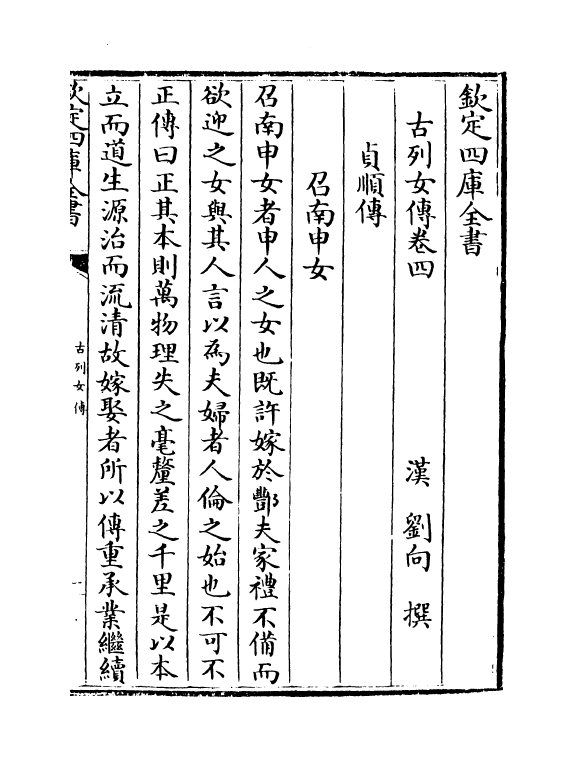 欽定四庫全書
古列女傳卷四
漢 劉向 撰
貞順傳
召南申女
召南申女者申人之女也既許嫁於酆夫家禮不備而
欲迎之女與其人言以為夫婦者人倫之始也不可不
正傳曰正其本則萬物理失之毫釐差之千里是以本
立而道生源治而流清故嫁娶者所以傳重承業繼續
欽定四庫全書
古列女傳
一